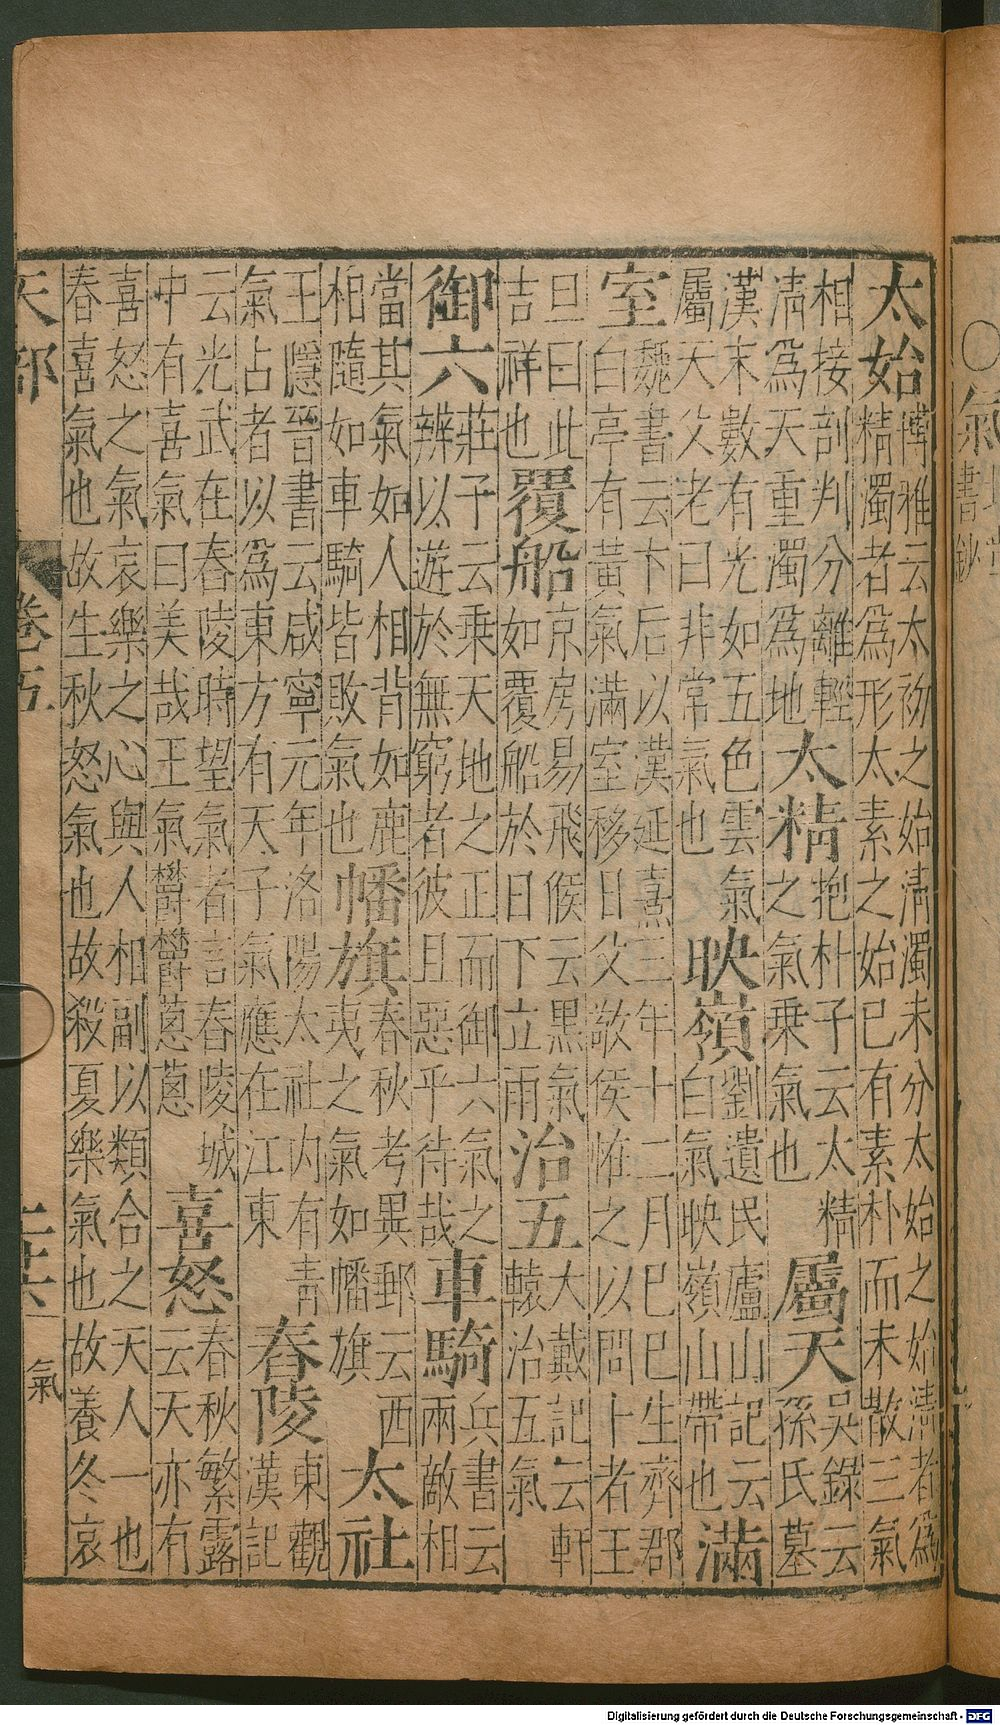 氣
書鈔
太始
博雅云太初之始清濁未分太始之始清者爲
精濁者爲形太素之始已有素朴而未散三氣
相接剖判分離輕
清爲天重濁爲地
太精
抱朴子云太精
之氣乘氣也
屬天
吳錄云
孫氏墓
漢末數有光如五色雲氣
屬天父老曰非常氣也
映嶺
劉遺民廬山記云
白氣映嶺山帶也
滿
室
魏書云卞后以漢延熹三年十二月巳巳生齊郡
白亭有黃氣滿室移日父敬侯怪之以問卜者王
旦曰此
吉祥也
覆船
京房易飛候云黑氣
如覆船於日下立雨
治五
大戴記云軒
轅治五氣
御六
莊子云乘天地之正而御六氣之
辨以遊於無窮者彼且惡乎待哉
車騎
兵書云
兩敵相
當其氣如人相背如鹿
相隨如車騎皆敗氣也
幡旗
春秋考異郵云西
夷之氣如幡旗
太社
王隱晉書云咸寧元年洛陽太社內有青
氣占者以爲東方有天子氣應在江東
舂陵
東觀
漢記
云光武在舂陵時望氣者言舂陵城
中有喜氣曰美哉王氣欝欝蔥蔥
喜怒
春秋繁露
云天亦有
喜怒之氣哀樂之心與人相副以類合之天人一也
春喜氣也故生秋怒氣也故殺夏樂氣也故養冬哀
天部
卷五
二十六
氣
Digitalisierung gefördert durch die Deutsche Forschungsgemeinschaft - DFG